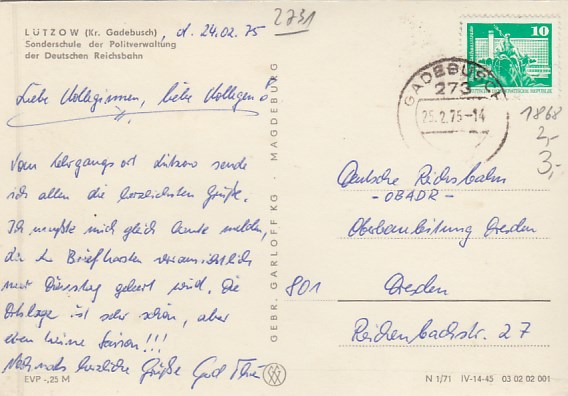 LÜTZOW (Kr. Gadebusch)
Sonderschule der Politverwaltung
der Deutschen Reichsbahn
, d. 24.02.75
2731
Liebe Kolleginnen, liebe Kollegen!
Vom Lehrgangsort Lützow sende
ich allen die herzlichsten Grüße.
Ich mußte mich gleich heute melden,
da der Briefkasten voraussichtlich
nur Dienstag geleert wird. Die
Ortslage ist sehr schön, aber
eben keine Saison!!!
Nochmals herzliche Grüße
EVP -,25 M
GEBR. GARLOFF KG · MAGDEBURG
10
GADEBUSCH
273
25.2.75-14
1868
2,-
3,-
Deutsche Reichsbahn
- OBADR -
Oberbauleitung Dresden
801 Dresden
Reichenbachstr. 27
N 1/71 IV-14-45 03 02 02 001